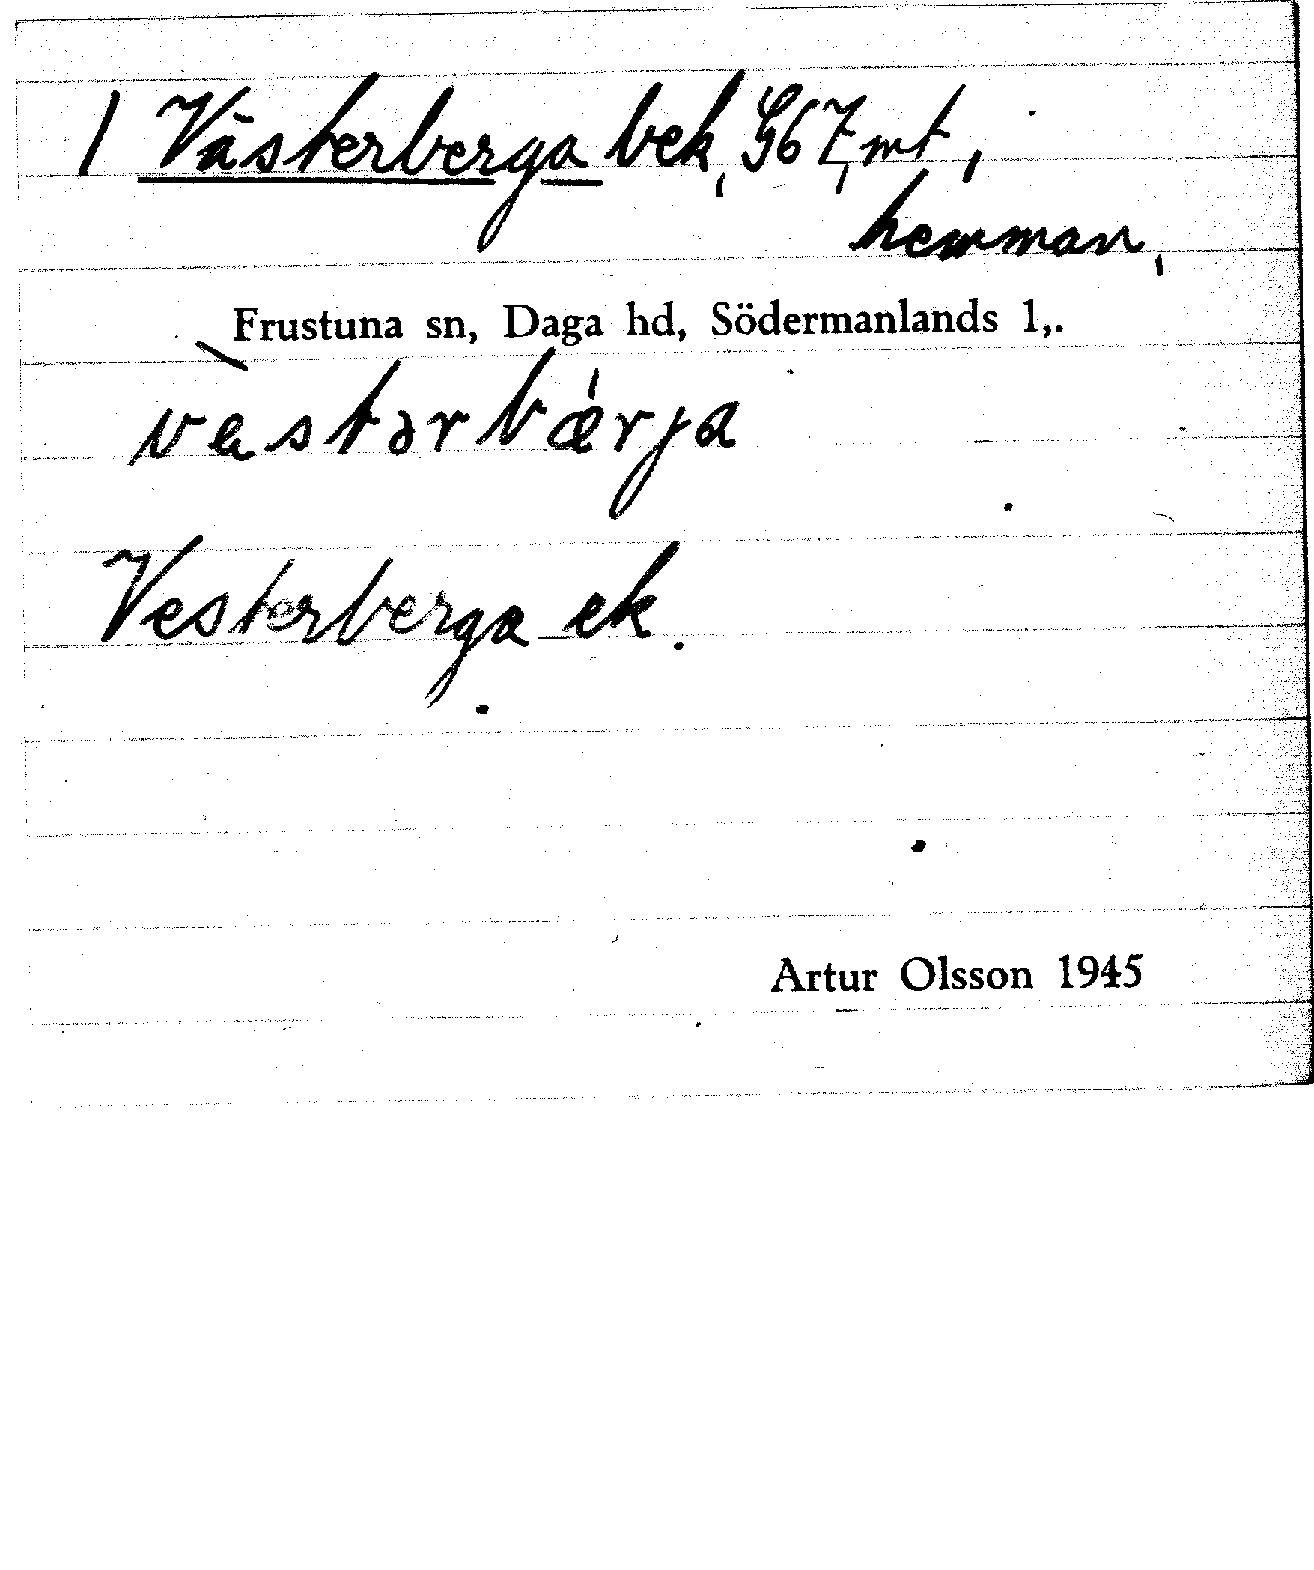 1 Västerberga bek, G67, mt,
hemman,
Frustuna sn, Daga hd, Södermanlands l,.
vàstərbǽrja
Vesterberga ek.
Artur Olsson 1945